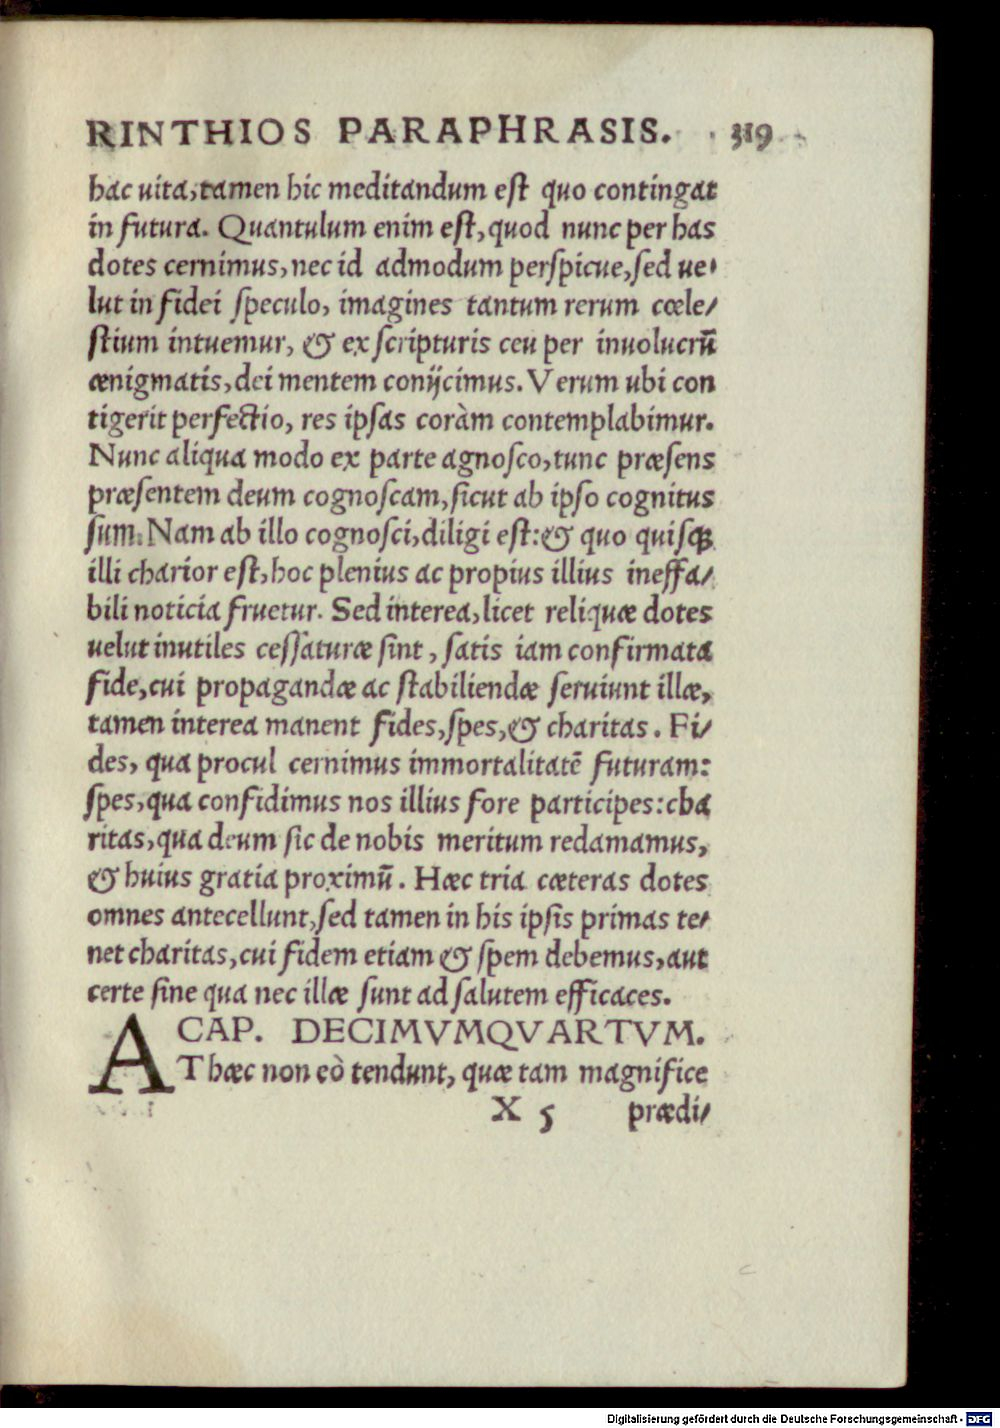 RINTHIOS PARAPHRASIS. 319
hac uita, tamen hic meditandum est quo contingat
in futura. Quantulum enim est, quod nunc per has
dotes cernimus, nec id admodum perspicue, sed ue/
lut in fidei speculo, imagines tantum rerum cœle/
stium intuemur, & ex scripturis ceu per inuolucrū
ænigmatis, dei mentem conijcimus. Verum ubi con
tigerit perfectio, res ipsas coràm contemplabimur.
Nunc aliqua modo ex parte agnosco, tunc præsens
præsentem deum cognoscam, sicut ab ipso cognitus
sum. Nam ab illo cognosci, diligi est: & quo quisqꝫ
illi charior est, hoc plenius ac propius illius ineffa/
bili noticia fruetur. Sed interea, licet reliquæ dotes
uelut inutiles cessaturæ sint, satis iam confirmata
fide, cui propagandæ ac stabiliendæ seruiunt illæ,
tamen interea manent fides, spes, & charitas. Fi/
des, qua procul cernimus immortalitatē futuram:
spes, qua confidimus nos illius fore participes: cha
ritas, qua deum sic de nobis meritum redamamus,
& huius gratia proximū. Hæc tria cæteras dotes
omnes antecellunt, sed tamen in his ipsis primas te/
net charitas, cui fidem etiam & spem debemus, aut
certe sine qua nec illæ sunt ad salutem efficaces.
CAP. DECIMVMQVARTVM.
AT hæc non eò tendunt, quæ tam magnifice
X 5 prædi/
Digitalisierung gefördert durch die Deutsche Forschungsgemeinschaft - DFG